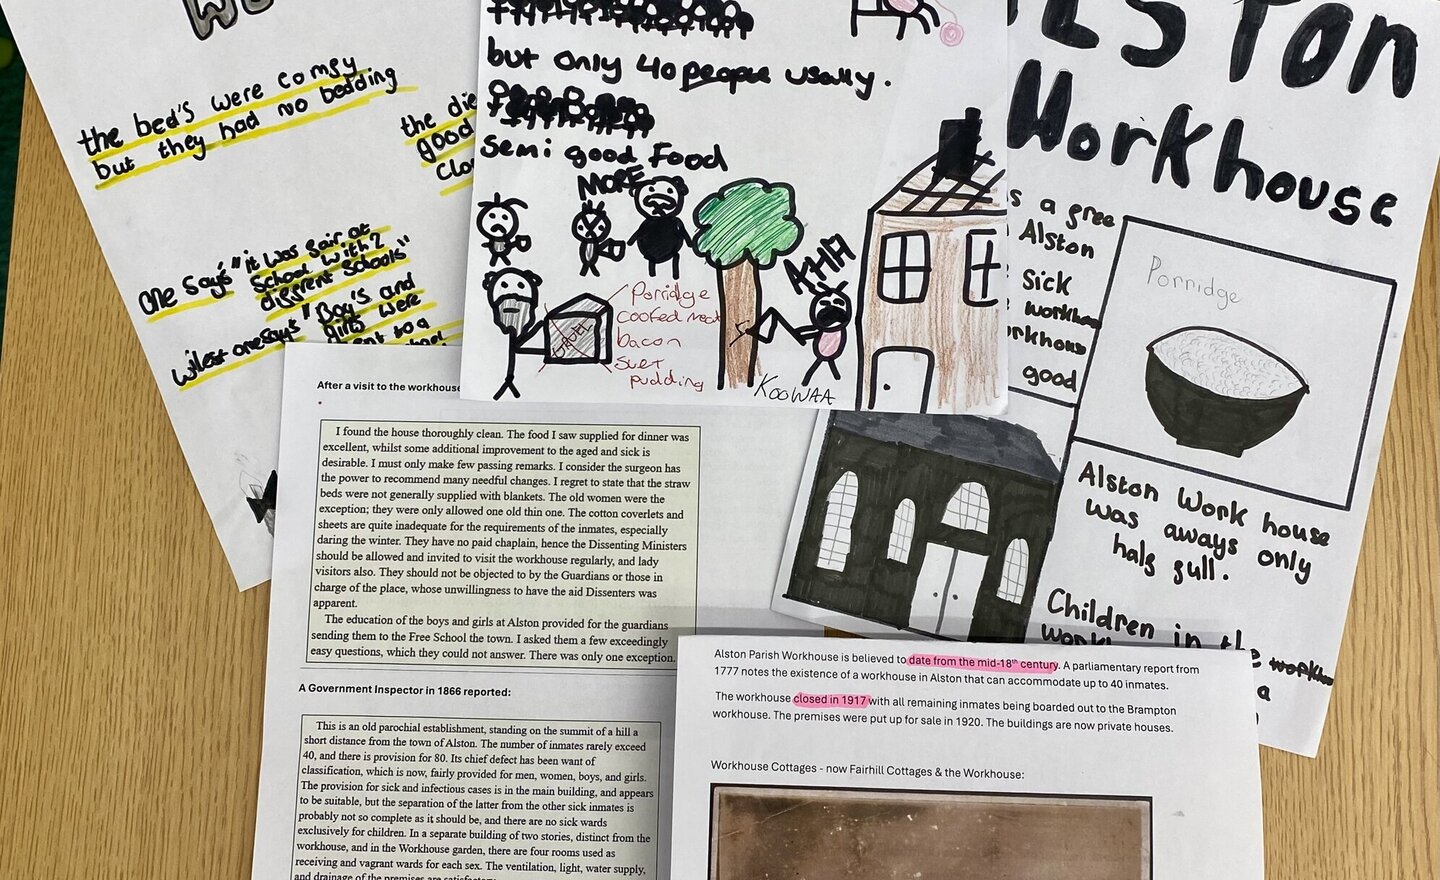 the bed's were comfy
but they had no bedding
the die
good
clo
one says "it was fair at
school with 2
different schools"
wilest one says "Boy's and
girls were
ent to a
but only 40 people usally.
semi good food
MORE
Poridge
cooked meat
bacon
suet
pudding
GRUEL
AHH
KOOWAA
Alston
Workhouse
s a gree
Alston
sick
workhou
orkhous
good
Porridge
Alston Work house
was aways only
half full.
Children in the
workh
a
After a visit to the workhouse
I found the house thoroughly clean. The food I saw supplied for dinner was
excellent, whilst some additional improvement to the aged and sick is
desirable. I must only make few passing remarks. I consider the surgeon has
the power to recommend many needful changes. I regret to state that the straw
beds were not generally supplied with blankets. The old women were the
exception; they were only allowed one old thin one. The cotton coverlets and
sheets are quite inadequate for the requirements of the inmates, especially
daring the winter. They have no paid chaplain, hence the Dissenting Ministers
should be allowed and invited to visit the workhouse regularly, and lady
visitors also. They should not be objected to by the Guardians or those in
charge of the place, whose unwillingness to have the aid Dissenters was
apparent.
The education of the boys and girls at Alston provided for the guardians
sending them to the Free School the town. I asked them a few exceedingly
easy questions, which they could not answer. There was only one exception.
A Government Inspector in 1866 reported:
This is an old parochial establishment, standing on the summit of a hill a
short distance from the town of Alston. The number of inmates rarely exceed
40, and there is provision for 80. Its chief defect has been want of
classification, which is now, fairly provided for men, women, boys, and girls.
The provision for sick and infectious cases is in the main building, and appears
to be suitable, but the separation of the latter from the other sick inmates is
probably not so complete as it should be, and there are no sick wards
exclusively for children. In a separate building of two stories, distinct from the
workhouse, and in the Workhouse garden, there are four rooms used as
receiving and vagrant wards for each sex. The ventilation, light, water supply,
and drainage of the premises are satisfactory
Alston Parish Workhouse is believed to date from the mid-18th century. A parliamentary report from
1777 notes the existence of a workhouse in Alston that can accommodate up to 40 inmates.
The workhouse closed in 1917 with all remaining inmates being boarded out to the Brampton
workhouse. The premises were put up for sale in 1920. The buildings are now private houses.
Workhouse Cottages - now Fairhill Cottages & the Workhouse: